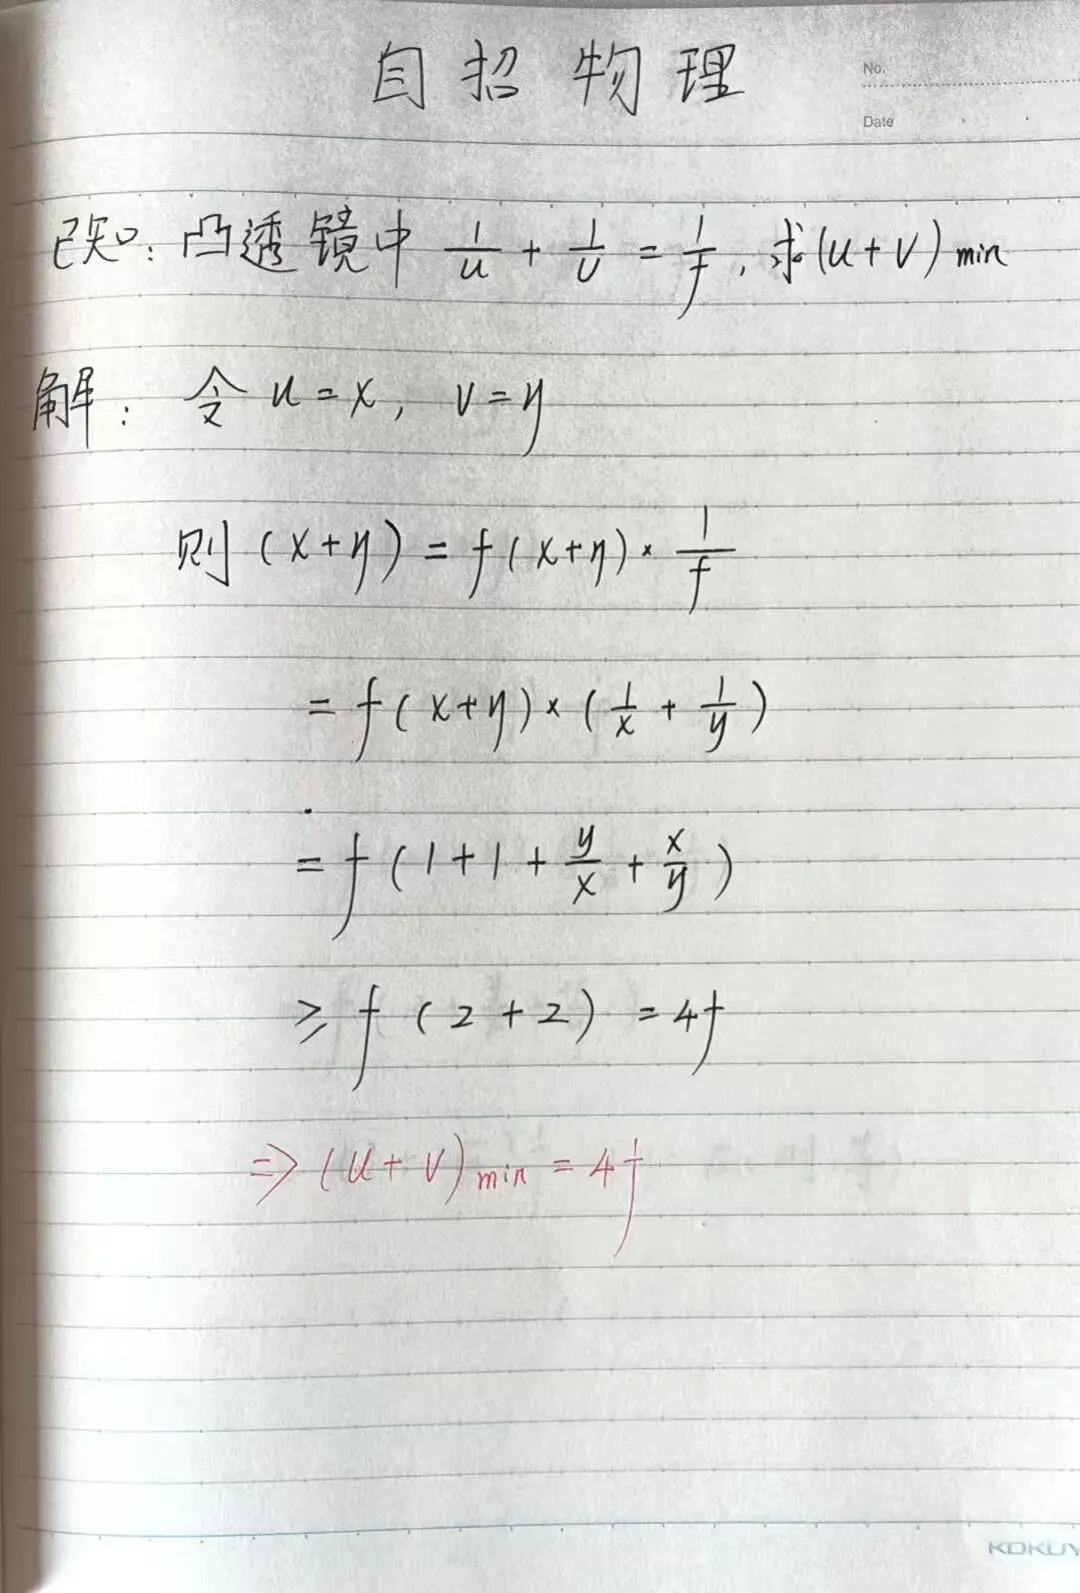 自招物理
No.
Date
已知:凸透镜中 1/u + 1/v = 1/f, 求(u+v)min
解: 令 u=x, v=y
则 (x+y) = f(x+y)×1/f
= f(x+y)×(1/x + 1/y)
= f(1+1+y/x+x/y)
≥ f(2+2) = 4f
⇒ (u+v)min = 4f
KOKUY